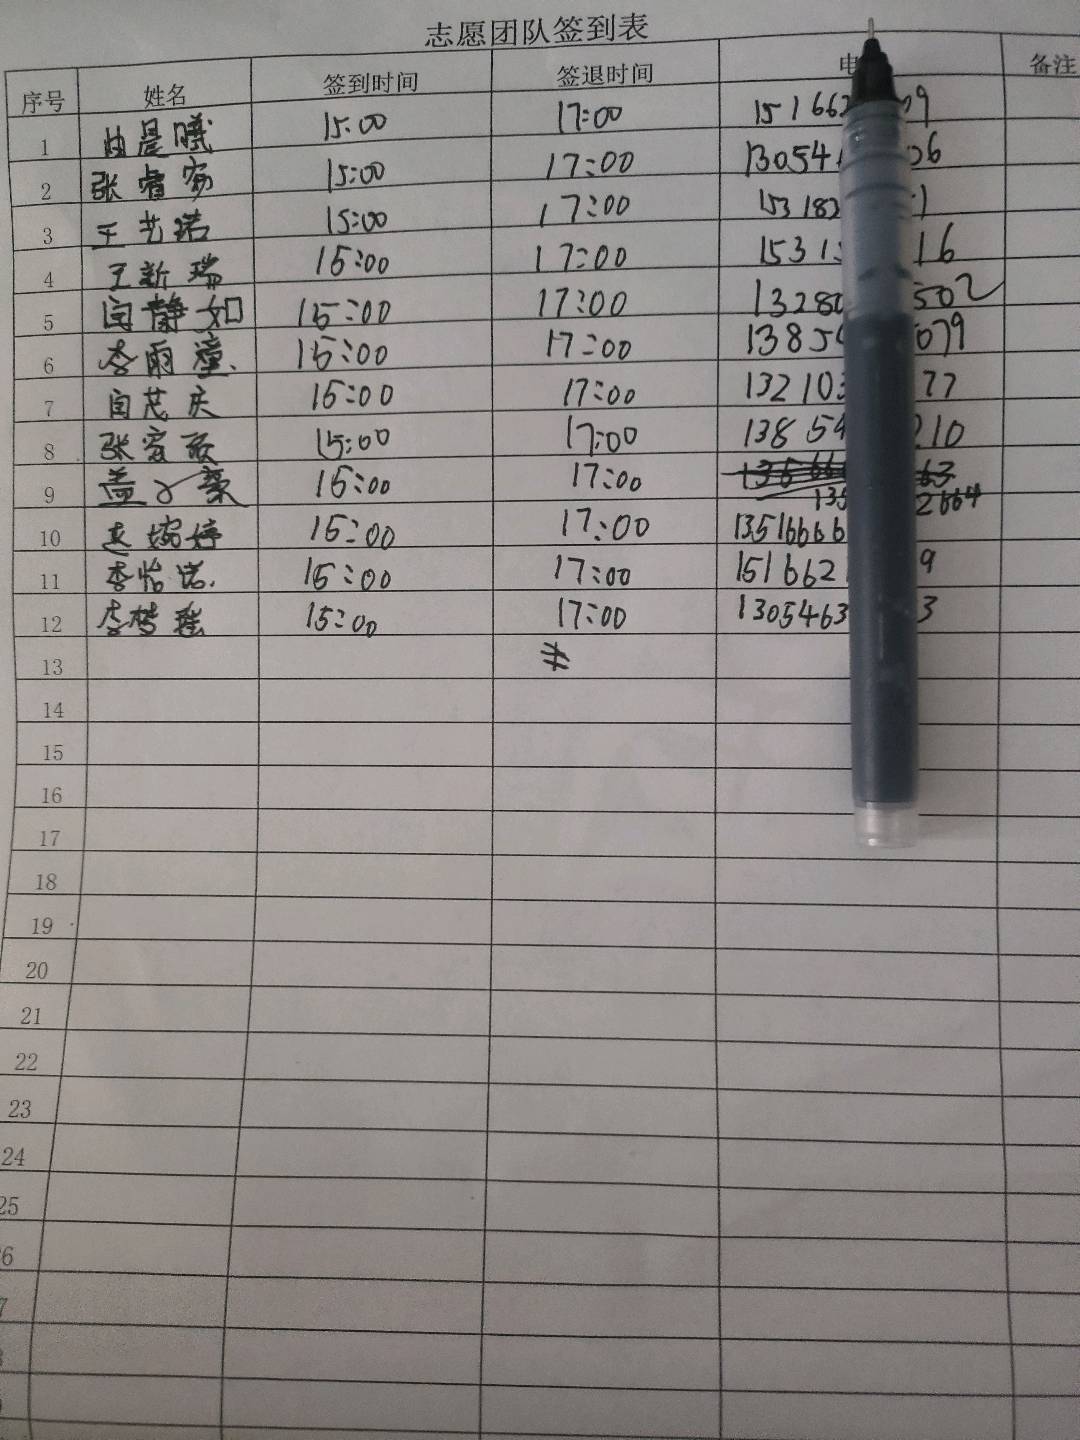 志愿团队签到表
序号 姓名 签到时间 签退时间 电 备注
1 曲晨曦 15:00 17:00 151662 09
2 张睿 15:00 17:00 13054 06
3 王艺诺 15:00 17:00 153182 1
4 王新瑞 15:00 17:00 1531 16
5 闫静如 15:00 17:00 13280 502
6 李雨潼. 15:00 17:00 1385 079
7 闫茂庆 15:00 17:00 132103 77
8 张家 15:00 17:00 13859 210
9 盖 15:00 17:00 135 2664
10 赵婉婷 15:00 17:00 13516666
11 李怡诺. 15:00 17:00 1516621 9
12 李梦瑶 15:00 17:00 1305463 3
13
14
15
16
17
18
19
20
21
22
23
24
25
6
7